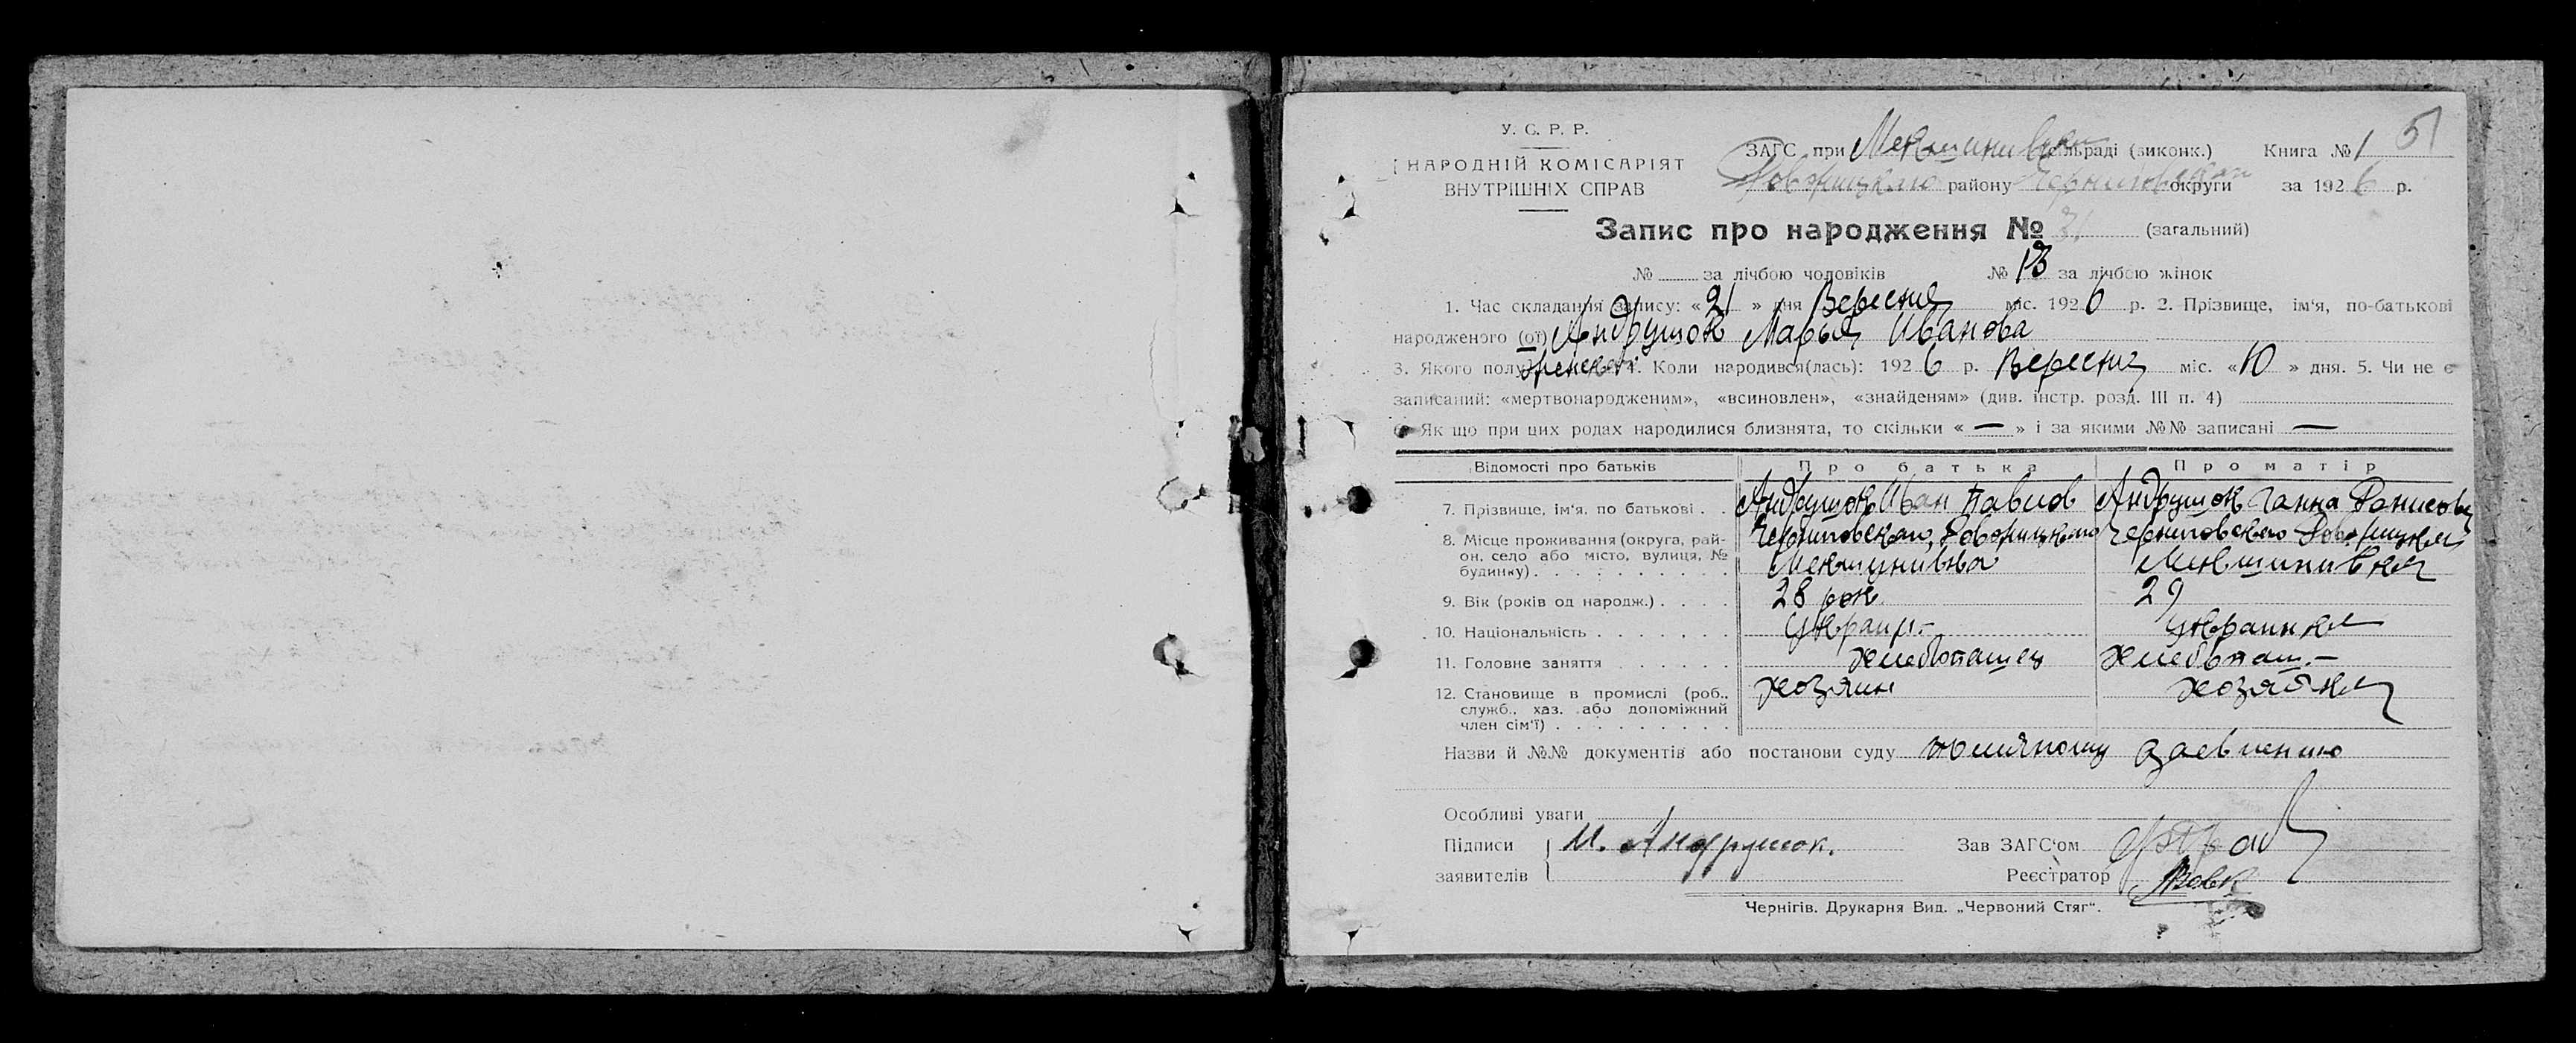 У. С. Р. Р.
НАРОДНІЙ КОМІСАРІЯТ
ВНУТРІШНІХ СПРАВ
ЗАГС при сельраді (виконк.) Книга № 1 51
району округи за 1926 р.
Запис про народження № 31 (загальний)
№ за лічбою чоловіків № 13 за лічбою жінок
1. Час складання запису: «21» дня Вересня міс. 1926 р. 2. Прізвище, ім'я, по-батькові
народженого (ої) Андрушок Марья Иванова
3. Якого полу женск. 4. Коли народився(лась): 1926 р. Вересня міс. «10» дня. 5. Чи не є
записаний: «мертвонародженим», «всиновлен», «знайденям» (див. інстр. розд. III п. 4)
6. Як що при цих родах народилися близнята, то скільки «—» і за якими №№ записані —
Відомості про батьків Про батька Про матір
7. Прізвище, ім'я, по батькові . . Андрушок Иван Павлов Андрушок Ганна Данисова
8. Місце проживання (округа, рай-
он, село або місто, вулиця, №
будинку) . . . . . . . . . .
9. Вік (років од народж.) . . . . 28 рок. 29
10. Національність . . . . . . . Украин.- Украинка
11. Головне заняття . . . . . . хлебопашец хлебопаш.-
12. Становище в промислі (роб., хозяин хозяйка
служб., хаз. або допоміжний
член сім'ї) . . . . . . . . .
Назви й №№ документів або постанови суду заевлению
Особливі уваги
Підписи И. Андрушок. Зав ЗАГС'ом
заявителів Реєстратор Вовк
Чернігів. Друкарня Вид. „Червоний Стяг".